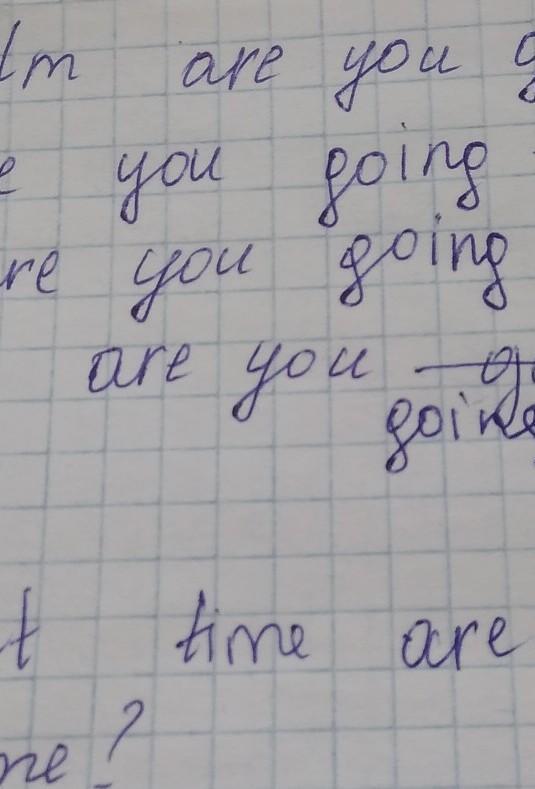 lm are you g
e you going
re you going
are you g
going
t time are
me?